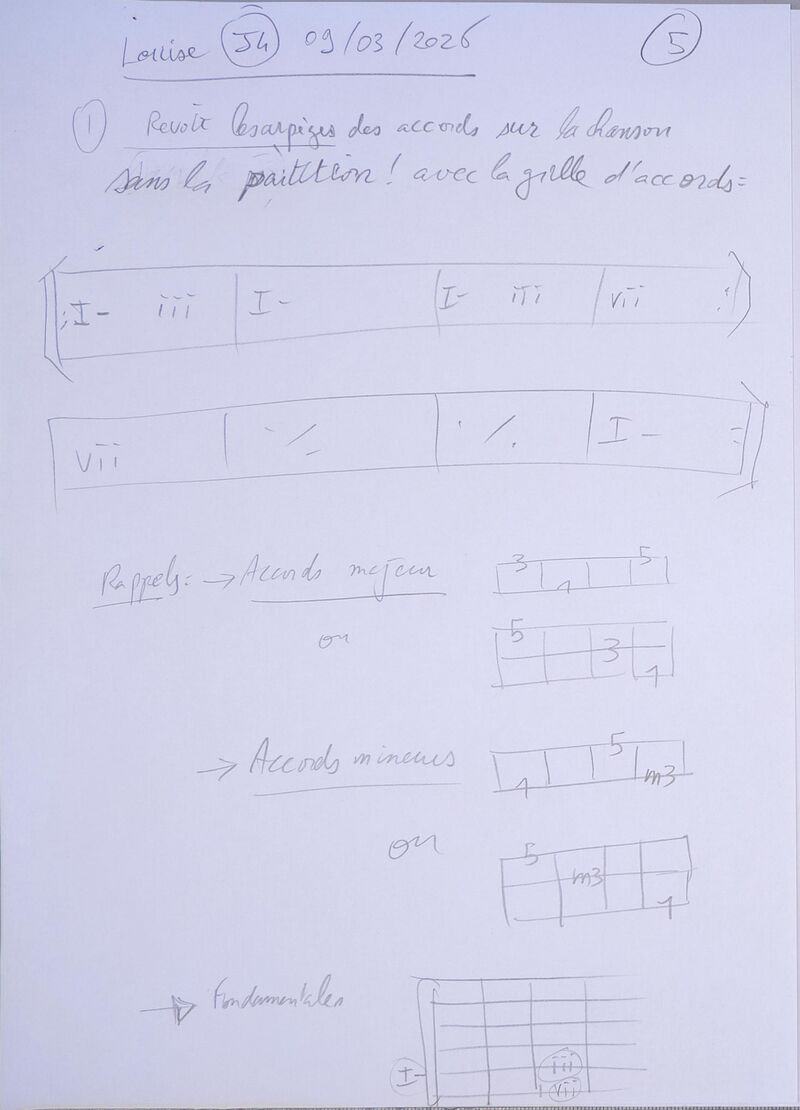 Louise J4 09/03/2026 5
1 Revoir les arpèges des accords sur la chanson
sans la partition ! avec la grille d'accords =
: I- iii I- I- iii vii :
vii ٪ ٪ I- :
Rappels : → Accords majeur 3 1 5
ou 5 3 1
→ Accords mineurs 1 5 m3
ou 5 m3 1
→ Fondamentales
I- iii
vii